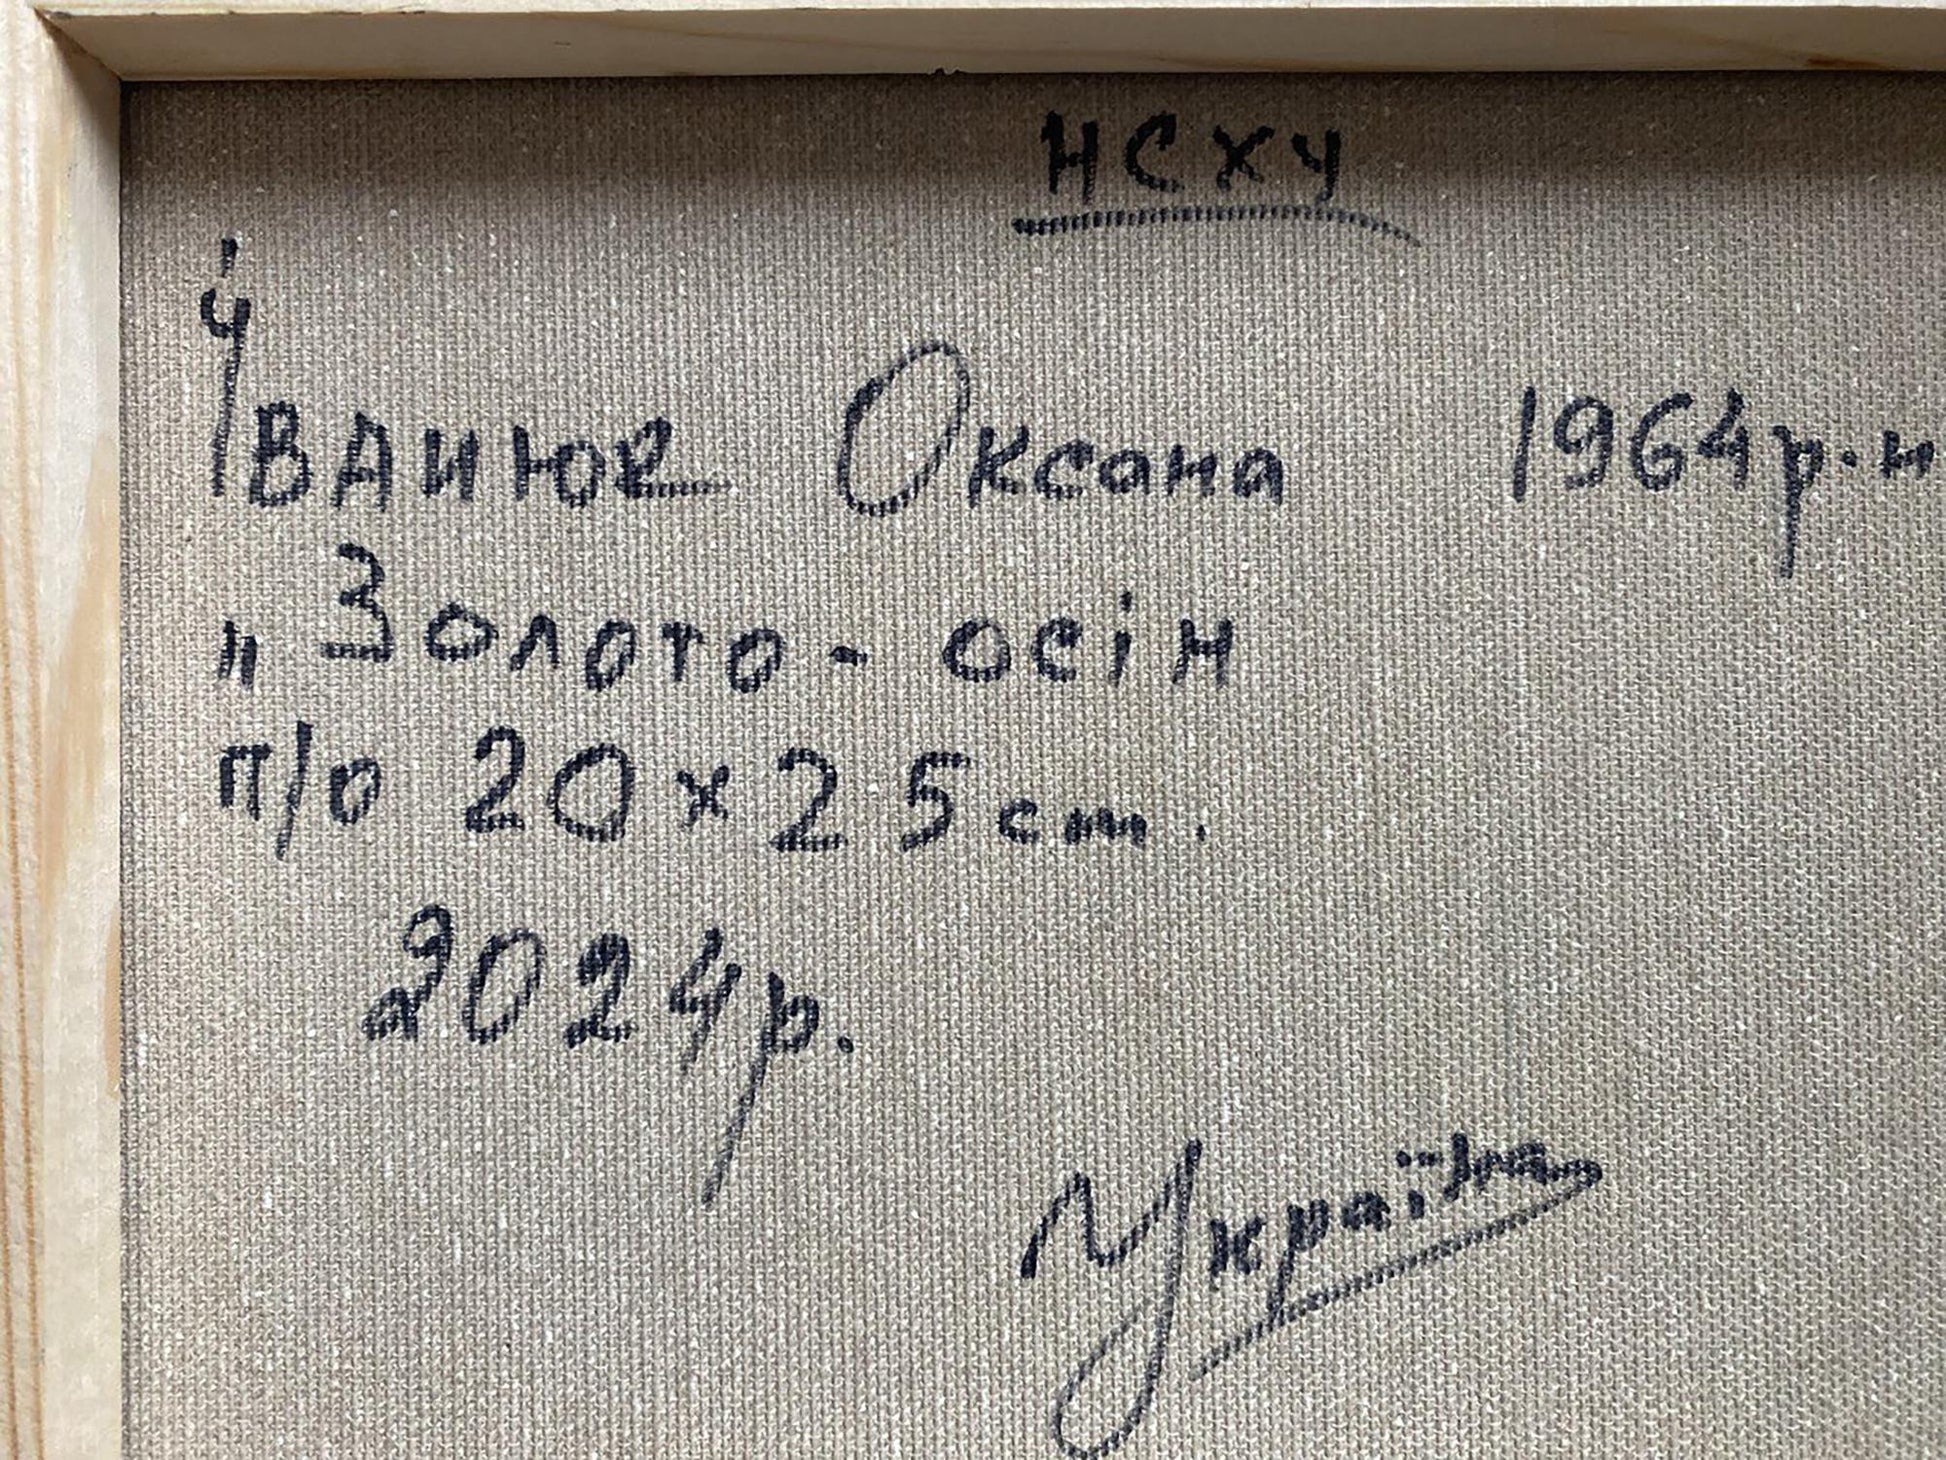 НСХУ
Іванюк Оксана 1964р.н
„Золото-осін
п/о 20х25 cm.
2024р.
Україна